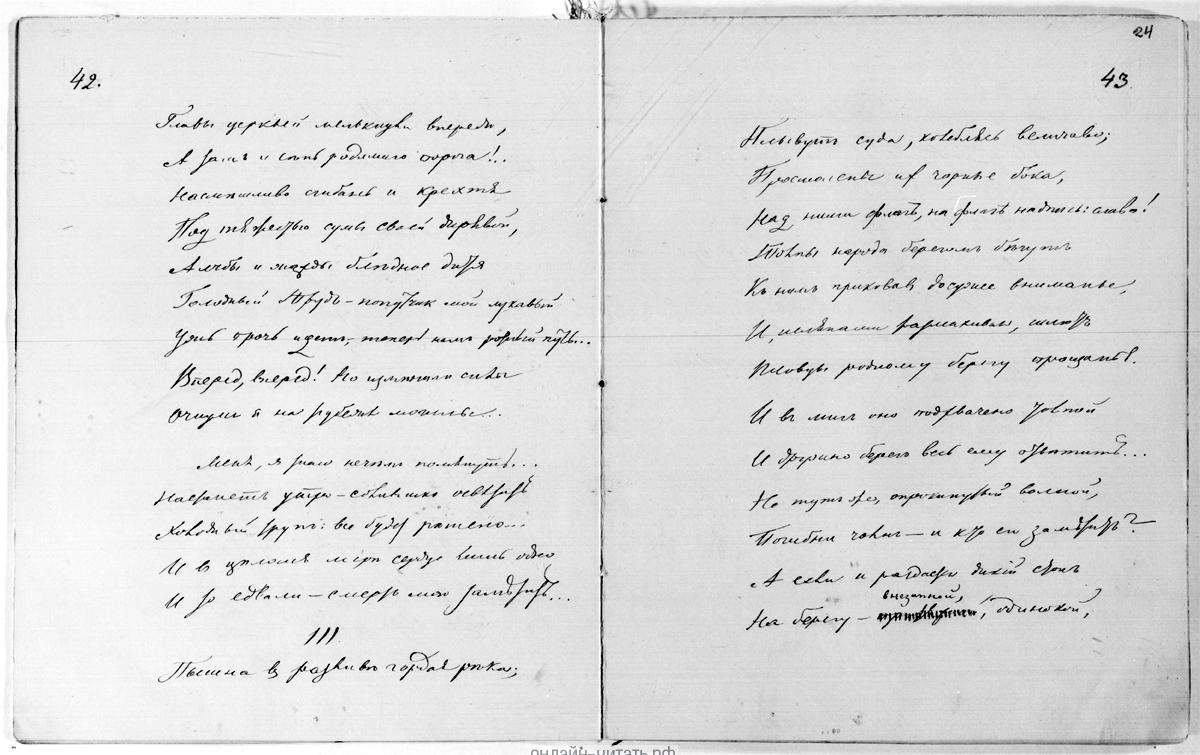 42.
Главы церквей мелькнули впереди,
А тамъ и сѣнь родимаго порога!..
Насмѣшливо сгибаясь и кряхтя
Под тяжестью сумы своей дырявой,
Алчбы и жажды блѣдное дитя
Голодный Трудъ – попутчик мой лукавый
Ужъ прочь идетъ, – теперь намъ розный путь...
Впередъ, впередъ! Но измѣнили силы
Очнулся я на рубежѣ могилы...
Меня, я знаю нечѣмъ помянуть...
Настанетъ утро – солнышко освѣтитъ
Холодный трупъ: все будетъ рѣшено...
И въ цѣломъ мірѣ сердце лишь одно
И то едвали – смерть мою замѣтитъ...
III.
Пышна въ разливѣ гордая рѣка;
24
43
Плывутъ суда, колеблясь величаво;
Просмолены их чорные бока,
Над ними флагъ, на флагѣ надпись: слава!
Толпы народа берегомъ бѣгутъ
Къ нимъ приковав досужее вниманье,
И, шляпами размахивая, шлютъ
Пловцы родному берегу прощанье.
И въ мигъ оно подхвачено толпой
И дружно берегъ весь ему отвѣтитъ...
Но тутъ же, опрокинутый волной,
Погибни чолнъ – и кто его замѣтитъ?
А если и раздастся дикій стонъ
внезапной,
На берегу – одинокой,